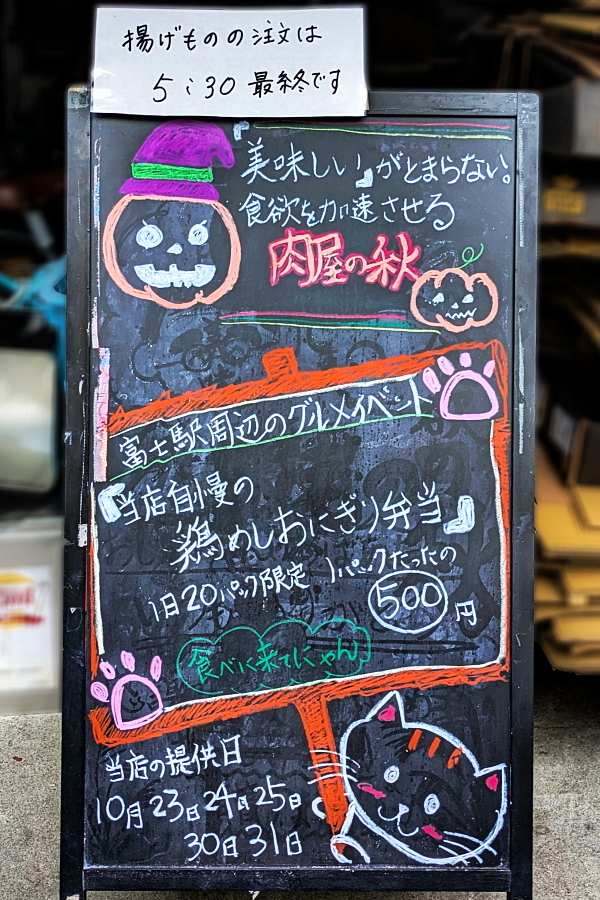 揚げものの注文は
5:30 最終です
『美味しい』がとまらない。
食欲を加速させる
肉屋の秋
富士駅周辺のグルメイベント
『当店自慢の
鶏めしおにぎり弁当』
1日20パック限定 1パックたったの
500円
食べに来てにゃん
当店の提供日
10月23日24日25日
30日31日